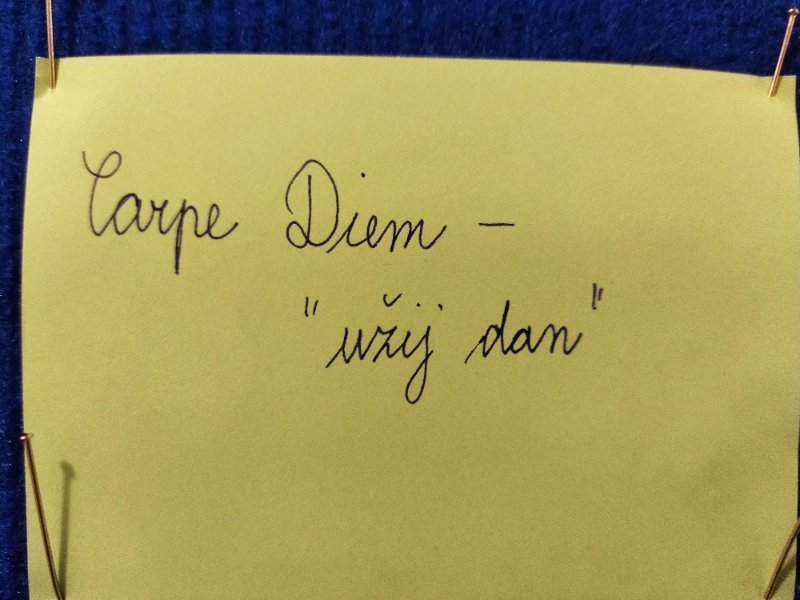 Carpe Diem -
"užij dan"